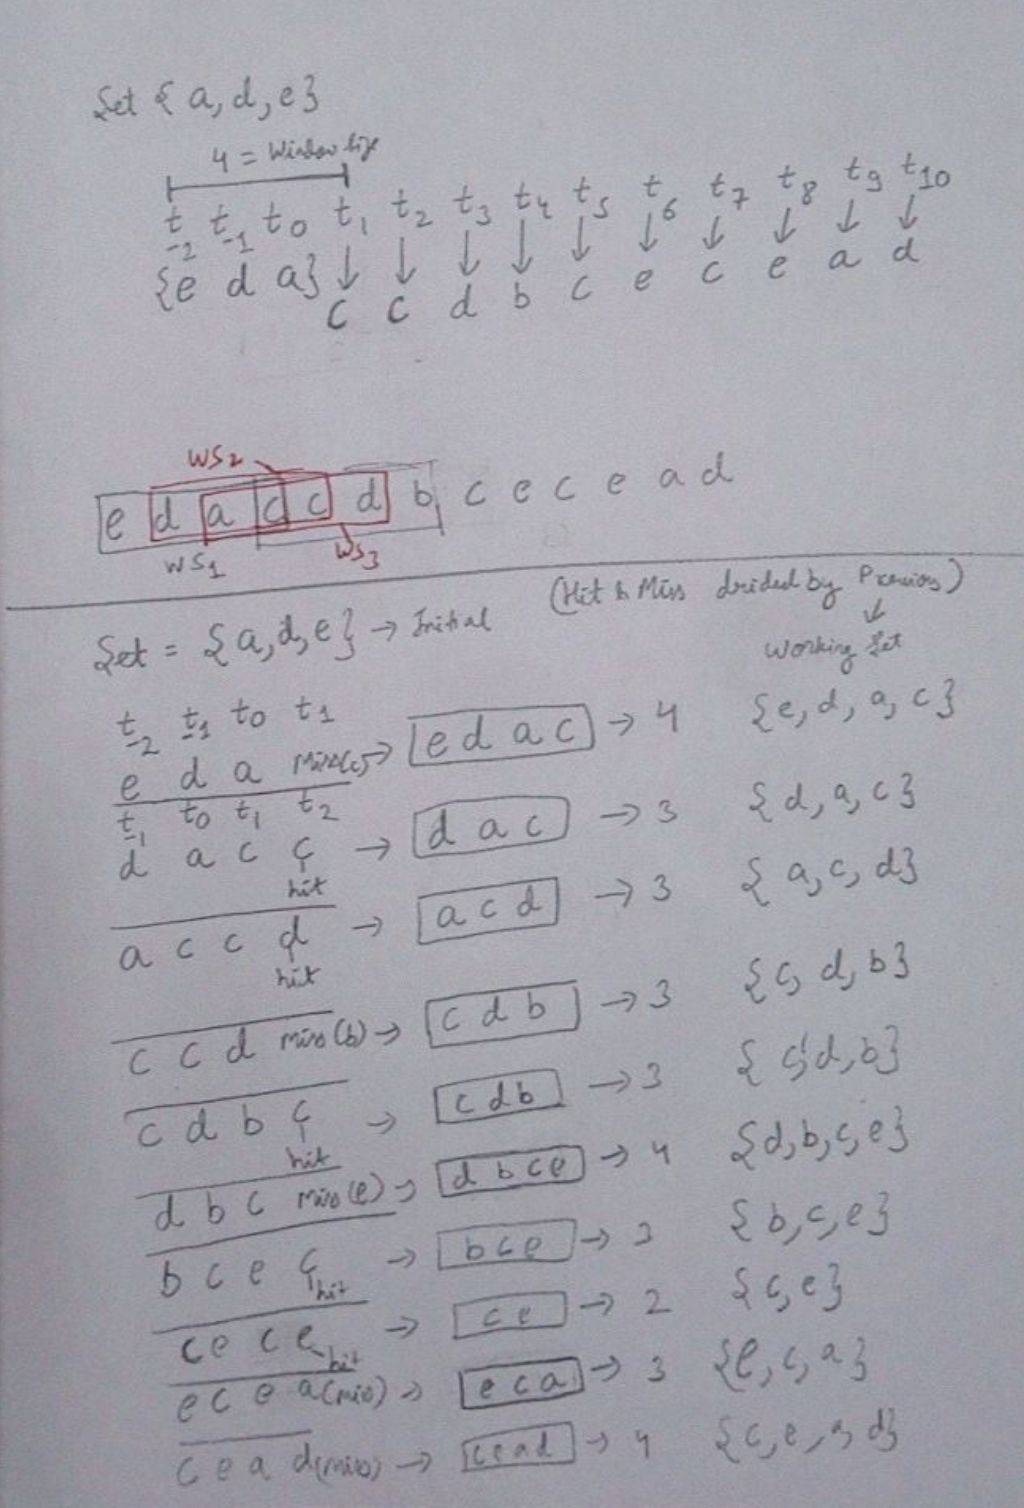 Set { a, d, e}
4 = Window size
t-2 t-1 t0 t1 t2 t3 t4 t5 t6 t7 t8 t9 t10
{e d a} ↓ ↓ ↓ ↓ ↓ ↓ ↓ ↓ ↓ ↓
c c d b c e c e a d
WS2
e d a c c d b c e c e a d
WS1 WS3
(Hit & Miss drided by Previous)
↓
Set = {a,d,e} → Initial
Working Set
t-2 t-1 t0 t1
e d a Miss(c) → e d a c → 4 {e, d, a, c}
t-1 t0 t1 t2
d a c c → d a c → 3 {d, a, c}
hit
a c c d → a c d → 3 {a, c, d}
hit
c c d miss(b) → c d b → 3 {c, d, b}
c d b c → c d b → 3 {c, d, b}
hit
d b c miss(e) → d b c e → 4 {d, b, c, e}
b c e c → b c e → 3 {b, c, e}
hit
c e c e → c e → 2 {c, e}
hit
e c e a (miss) → e c a → 3 {e, c, a}
c e a d (miss) → c e a d → 4 {c, e, a, d}